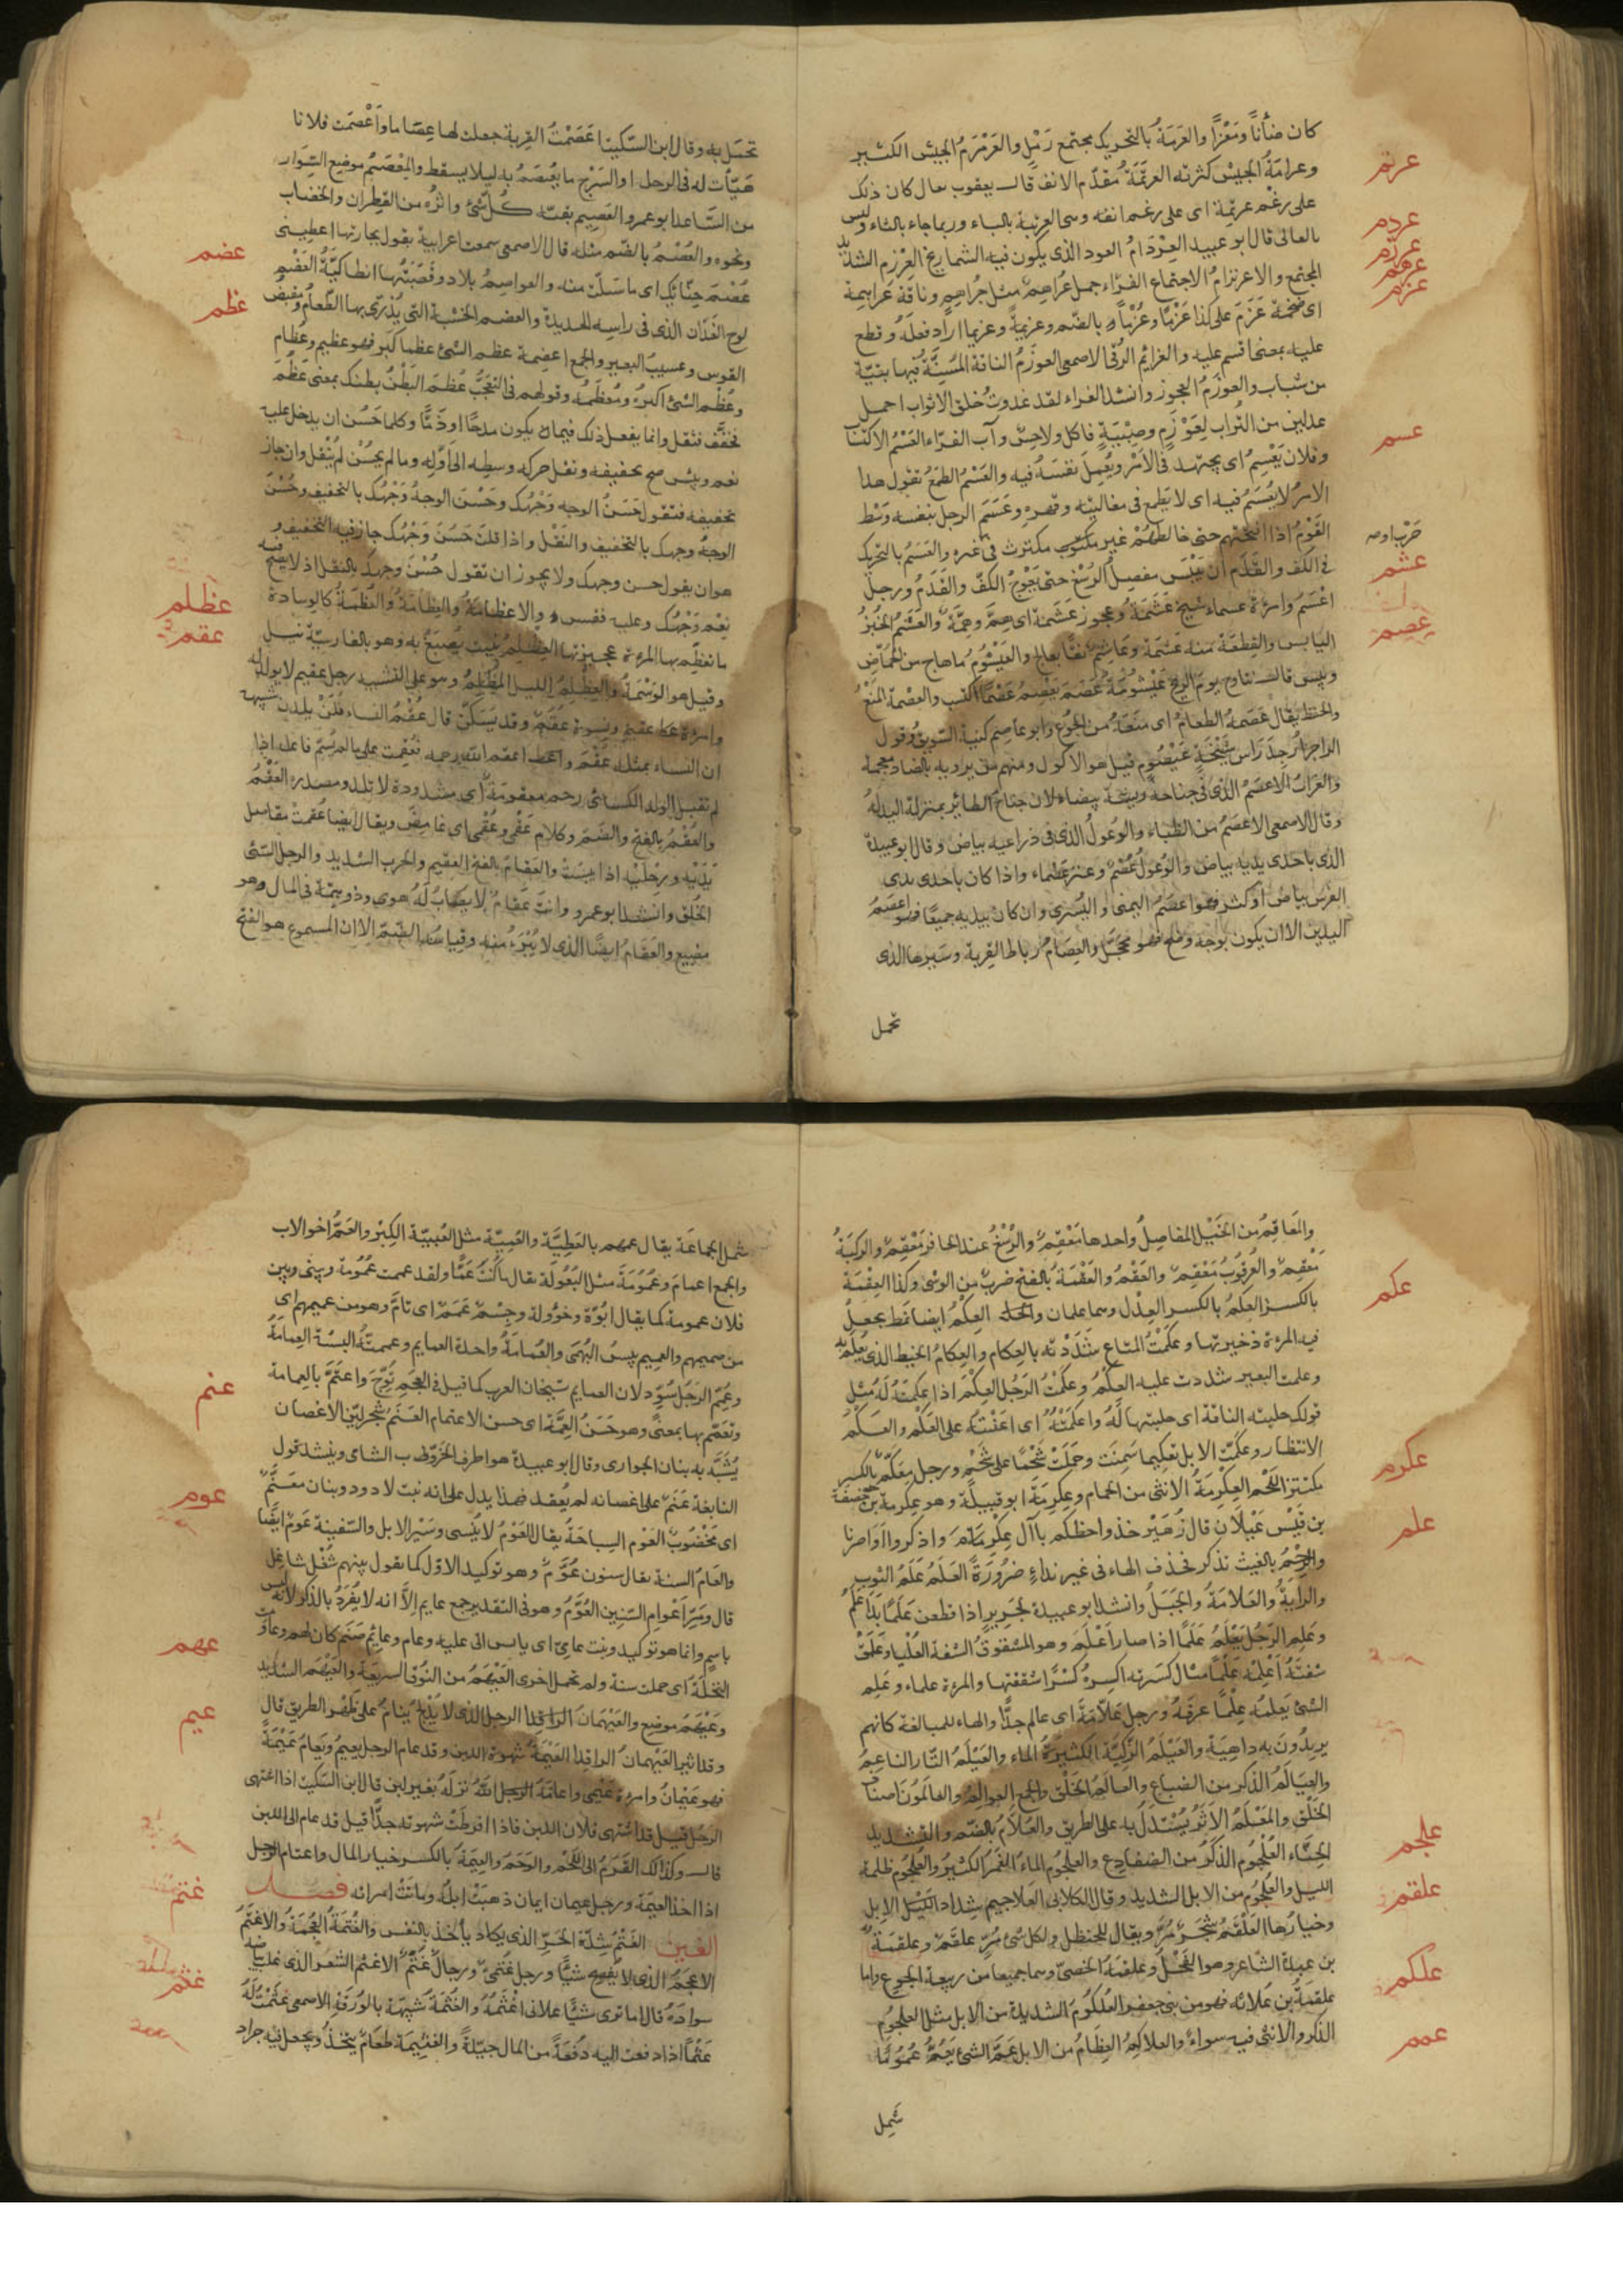 كان ضأنًا ومَعْزًا والعَرَمَةُ بالتحريك مجتمع رَمْلٍ والعَرَمْرَمُ الجيش الكثير
عرتم
وعرامَةُ الجيش كثرته العرتَمَةُ مقدّم الانف قال يعقوب يقال كان ذلك
على رغم عرتمة اى على رغم انفه وهى العرتبة بالباء وربما جاء بالثاء وليس
عردم
بالعالى قال ابو عبيد العِرْدَامُ العود الذى يكون فيه الشماريخ العِرْزم الشديد
عرزم
عرهم
المجتمع والاعرنزامُ الاجتماع الفرّاء جمل عُراهِمٌ مثل جُراهِمٍ وناقة عراهِمة
عزم
اى ضخمة عَزَمَ على كذا عَزْمًا وعُزْمًا بالضم وعزيمةً وعزيما اراد فعلَهُ وقطع
عليه بمعنى اقسم عليه والعزائم الرُقى الاصمعى العوزَمُ الناقة المُسِنَّةُ فيها بقيّة
من شباب والعوزَمُ العجوز وانشد الفراء لقد غدوت خلق الاثواب احمل
عسم
عدلين من التُراب لِعَوْزَمٍ وصِبْيَةٍ فاكل ولاحِسٌ وآب الفرّاء العَسْمُ الاكتساب
وفلان يَعْسِمُ اى يجتهد فى الأمر ويُعْمِلُ نفسَهُ فيه والعَسْمُ الطمَعُ تقول هذا
الامرُ لا يُعْسَمُ فيه اى لا يطمع فى مغالبته وقهره وعَسَمَ الرجل بنفسه وَسَط
القَوْمِ اذا اقتحمهم حتى خالطهم غير مكترث فى غيره والعَسَمُ بالتحريك
عشم
فى الكف والقَدَم ان يَيْبَس مفصل الرُسْغ حتى يَعْوَجَّ الكفّ والقَدَمُ ورجل
اعْسَمُ وامرءة عسماء شيخ عَشَمَةٌ وعجوز عَشَمَة اى هِمٌّ وهِمَّةٌ والعَشَمُ الخُبْزُ
عصم
اليابس والقِطعَة منه عَشَمَة وعاشِمٌ نقًا بعالج والعَيْشُومُ ما هاج من الحُمّاض
ويبس قال تناوح يومَ الريح عَيْشُومَةٌ عَصَمَ يَعْصِمُ عَصْمًا اكتسب والعِصْمة المَنْعُ
والحفظ يقال عَصَمهُ الطعامُ اى منَعَهُ من الجُوع وابو عاصم كنية السَويق وقول
الراجز اُرجِدَ رَاس شَيْخَةٍ عَيْصُومِ قيل هو الاكول ومنهم من يرويه بالضاد معجمة
والغرابُ الاعصَمُ الذى فى جناحهِ ريشة بيضاء لان جناحَ الطائر بمنزلة اليد لهُ
وقال الاصمعى الاعصَمُ من الظباء والوُعولُ الذى فى ذراعيه بياض وقال ابو عبيدة
الذى باحدى يديه بياض والوُعولُ عُصْمٌ وعنز عصماء واذا كان باحدى يدى
الفرَس بياض او كثر فهو اعصَمُ اليمنى واليُسرى وان كان بيديه جميعًا فهو اعصَمُ
اليدين الا ان يكون بوجهه وضَح فهو محجَّل والعِصَامُ رباط القِربة وسَيرها الذى
تحمل
تحمَل به وقال ابن السّكّيت اعْصَمْتُ القِربة جعلت لها عِصَاما واَعْصَمْت فلانا
هَيّأت له فى الرحل او السَرْج ما يَعْتَصِمُ به ليلا يسقط والمِعْصَمُ موضع السِوَار
من السَّاعد ابو عمرو العَصِيم بقيّة كُلّ شئٍ واثرُه من القَطِران والخضاب
ونحوه والعُصْمُ بالضّم مثله قال الاصمعى سمعت اعرابية تقول لجارتها اعطينى
عضم
عُصْمَ حِنّائكِ اى ما سَلَتّ منه والعواصِمُ بلاد وقصَبَتُها انطاكيّةُ العَضْم
عظم
لوح الفَدّان الذى فى راسِه الحديدة والعضم الخشبة التى يُذرّى بها الطَّعامُ ومقبض
القوس وعسيبُ البعير والجمع اعضِمة عظم الشئ عظما كبُر فهو عظيم وعُظام
وعُظْم الشئ اكبرُه ومُعظَمه وقولهم فى التعجّب عُظْمَ البَطْنُ بطنك بمعنى عَظُمَ
مُخَفَّف مُثقل وانما يفعل ذلك فيما يكون مدحًا او ذَمًّا وكلما حَسُنَ ان يدخل عليه
نعم وبئس صح تخفيفه ونقل حركه وسطِه الى اوّلِه وما لم يحسُن لم يُنْقل وان جاز
تخفيفه فتقول حَسُنَ الوجه وَجْهُك وحَسْنَ الوجهُ وَجْهُك بالتخفيف وحُسْنَ
الوجهُ وجهك بالتخفيف والنَقْل واذا قلتَ حَسُنَ وَجْهُك جاز فيه التخفيف و
هو ان يقول حسن وجهك ولا يجوز ان تقول حُسْنَ وجهك بالنقل اذ لا يصلح فيه
عظلم
نِعْم وَجْهُك وعليه فقس والاعظامَةُ والعِظَامَةُ والعُظْمَةُ كالوسادة
عقم
ما تعظّم بها المرءة عجيزتها العِظْلِمُ نبت يُصبَغُ به وهو بالفارسيّة نيل
وقيل هو الوَسْمَةُ والعِظْلِمُ الليل المظلِمُ وهو على التشبيه رجل عقيم لا يولد له
وامرءة عقيم ونسوة عُقُمٌ وقد يُسَكّن قال عُقُمُ النساء فلَنْ يلدن شبيهه
ان النساء بمثله عُقْمُ واعقم الله رحمه فعُقِمت على ما لم يُسَمّ فاعله اذا
لم تقبل الولد الكسائى رحم معقومَةٌ اى مشدودة لا تلد ومصدره العَقْمُ
والعُقْمُ بالفتح والضّم وكلام عَقمى وعُقْمى اى غامضٌ ويقال ايضا عَقِمتْ مفاصل
يَدَيْه ورِجْليْه اذا يبسَتْ والعَقامُ بالفتح العقيم والحرب الشديد والرجل السّئ
الخُلق وانشد ابو عمرو وانت عَقامٌ لا يصابُ لَهُ هوى وذو همّة فى المال وهو
مضيع والعَقَامُ ايضًا الذى لا يُبْرَءُ منه وقياسُه الضَمّ الا ان المسموع هو الفتح
والمَعَاقِمُ من الخَيْل المفاصِلُ واحدها مَعْقِمٌ والرُسْغُ عند الحافر مَعْقِمٌ والركبَةُ
عكم
مَعْقِمٌ والعُرقوبُ مَعْقِمٌ والعَقْمُ والعَقْمَةُ بالفتح ضربٌ من الوشى وكذا العِقْمَة
بالكسر العِكمُ بالكسر العِدْل وهما عِكمان والعِكْمُ ايضا نمَط يجعلُ
فيه المرءة ذخيرتها وعَكَمْتُ المتاع شَدَدْته بالعِكام والعِكامُ الخيط الذى يُعكَم به
وعكمت البعير شددت عليه العِكْمَ وعكَمْتُ الرَجُل العِكْمَ اذا عكمتَهُ لهُ مثل
قولك حلبته الناقة اى حلبتها لَهُ واعكَمْتُه اى اعَنْتُهُ على العَكْم والعَكْمُ
عكرم
الانتظار وعَكّمت الابل تعكيما سَمِنَت وحَمَلَتْ شَحْمًا على شَحْمٍ ورجل مِعكَمٌ بالكسر
مكتنز اللحم العِكْرِمَةُ الانثى من الحمام وعِكرِمَةُ ابو قبيلَة وهو عِكرمة بن خصفة
علم
بن قَيْس عَيْلان قال زُهَيْر خذوا حظكم يا آل عِكْرِمَ واذكروا اَوَاصِرنا
والرِّحْمُ بالغيث تذكر فحذف الهاء فى غير نداءٍ ضرُورَةً العَلَمُ عَلَمُ الثوب
والرايَةُ والعَلامَةُ والجبَلُ وانشد ابو عبيدة لجَريرٍ اذا قطعن عَلَمًا بدَا عَلَمُ
وعَلِمَ الرَجُل يَعْلَمُ عَلَمًا اذا صار اَعْلَمَ وهو المشقوقُ الشفة العُلْيا وعَلَمْتُ
شفتَهُ اَعْلِمُه عَلْمًا مثال كسَرته اكسِرُهُ كسْرًا شققتها والمرءة علماء وعَلِم
الشئ يَعلمُه عِلْمًا عرفَهُ ورجل عَلاّمَةٌ اى عالم جدًّا والهاء للمبالغة كانهم
يريدُون به داهِيَة والعَيْلَمُ الرَّكيّة الكثيرَةُ الماء والعَيْلَمُ التَارّ الناعِمُ
والعَيْلَمُ الذكر من الضباع والعالَمُ الخَلق والجمع العوالِمُ والعالَمُونَ اصناف
علجم
الخَلْق والمَعْلَمُ الاَثَرُ يُسْتَدلُّ به على الطريق والعُلّامُ بالضّم والتشديد
الحِنَّاء العُلْجُوم الذَّكَرُ من الضفادع والعلجُوم الماءُ الغمْرُ الكثيرُ والعُلْجُوم ظلمة
علقم
الليل والعُلْجُوم من الابل الشديد وقال الكلابى العَلاجيم شِداد الابِل
وخيارُها العَلْقَمُ شَجَرٌ مُرٌّ ويقال للحنظل ولكل شئ مُرٍّ علقَمٌ وعلقمَةُ
علكم
بن عبدة الشّاعر وهو الفَحْلُ وعلقمَةُ الخَصىّ وهما جميعًا من ربيعة الجوع واما
علقمَةُ بن عُلاثه فهو من بنى جعفر العُلكُومُ الشديدة من الابل مثل العلجُوم
عمم
الذكر والانثى فيه سواءٌ والعلاكِمُ العِظَامُ من الابل عَمَّ الشئ يَعُمُّ عُمُومًا
شمل
شمل الجماعَةَ يقال عمهم بالعَطِيَّة والعُمِيّة مثل العُبِيّة الكِبْرُ والعَمُّ اخو الاب
والجمع اعمام وعُمُومَة مثل البُعُولة يقال ما كنتَ عَمًّا ولقد عممت عُمُومَة وبينى وبين
فلان عمومة كما يقال ابُوّة وخؤولة وجِسْمٌ عَمَمٌ اى تامٌّ وهو من عميمهم اى
من صميمهم والعميم يبيسُ البُهْمَى والعِمَامَةُ واحدة العمايم وعممتُه البستُه العِمَامَةَ
عنم
وعُمِّمَ الرَجُل سُوِّد لان العمايم تيجان العرب كما قيل فى العَجَم تُوِّجَ واعتَمَّ بالعِمامة
وتعمّم بها بمعنًى وهو حَسَنُ العِمَّة اى حسن الاعتمام العَنَمُ شجر ليّن الاغصان
يُشَبَّهُ به بنان الجوارى وقال ابو عبيدة هو اطراف الخَرّوب الشامى وينشد قول
عوم
النابغة عَنَمٌ على اغصانه لم يُعقد فهذا يدل على انه نبت لا دود وبنان مُعَنَّمٌ
اى مَخْضُوبٌ العَوْم السِباحَةُ يقال العَوْمُ لا يُنْسى وسَيْر الابل والسّفينة عَومٌ ايضًا
والعَامُ السنة يقال سنون عُوَّمٌ وهو توكيد الاوّل كما تقول بينهم شُغْلٌ شاغِل
قال ومَرّ اَعْوام السّنِين العُوَّمُ وهو فى التقدير جمع عايم إلاَّ انه لا يُفْرَدُ بالذكر لانّه ليس
عهم
باسمٍ وانما هو توكيد ونبت عامِىّ اى يابس اتى عليه عام وعايِمٌ صَنَم كان لهم وعاوَمت
النخلة اى حملت سنة ولم تحمل اخرى العَيْهَمُ من النُوق السريعة والعَيْهَم الشديد
عيم
وعَيْهَمُ موضع والعَيْهَمَانُ الرجل الذى لا يُدْلِجُ ينامُ على ظهر الطريق قال
وقد اثير العَيْهمانَ الراقِدا العَيْمَةُ شهوة اللبن وقد عام الرجل يعيمُ ويَعَامُ عَيْمَةً
فهو عَيْمانُ وامرءة عَيْمى واعامَهُ اللهُ تركَهُ بغير لبن قال ابن السكيت اذا اشتهى
الرجل قيل قد اشتهى فلان اللبن فاذا افرطَتْ شهوته جدًّا قيل قد عام الى اللبن
قال وكذلك القَرَمُ الى اللحْم والوَحَمُ والعِيمَةُ بالكسر خيار المال واعتام الرجل
غتم
اذا اخذ العيمَة ورجل عيمان ايمان ذهبَتْ ابلُهُ وماتتْ امرءته فصل
الغين الغَتْمُ شِدّة الحَرّ الذى يكاد يأخذ بالنفس والغُتْمَةُ العُجمَةُ والاغتَمُ
غثم
الاعجَمُ الذى لا يُفْصِحُ شيئًا ورجل غُتْمىٌّ ورجالٌ غُتْمٌ الاغثم الشعر الذى غلب بياضه
سوادَهُ قال اما ترى شيئًا علانى اغثَمُهُ والغُثْمَةُ شبيهَة بالوُرقةِ الاصمعى غَثَمْتُ لَهُ
غَثْمًا اذا دفعت اليه دُفعَةً من المال جيّدة والغَثيمَة طعَامٌ يتخذُ ويجعل فيه جراد